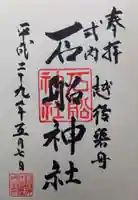 奉拝
越後磐舟
式内
石船神社
石船神社
平成二十九年五月七日